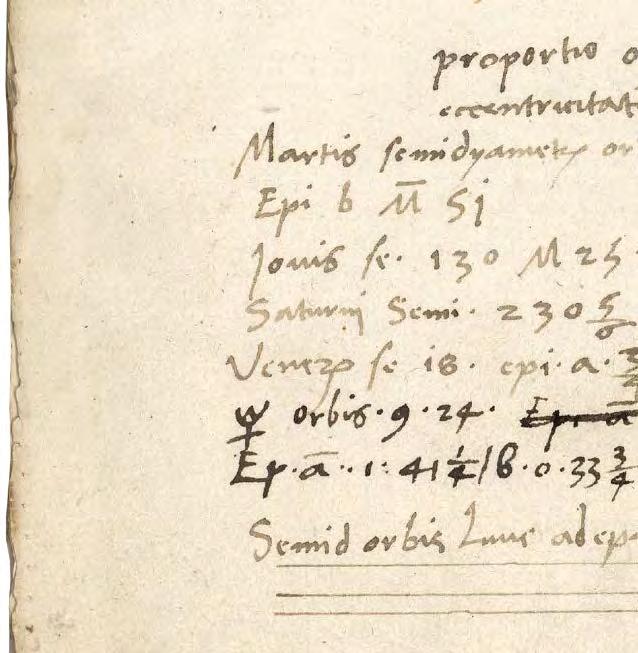 proportio o
eccentricitati
Martis semidyameter or
Epi b M̄ 51
Jovis se. 130 M 25
Saturni Semi. 230 5/6
Veneris se 18. epi. a. 3/4
☿ orbis. 9. 24. Ep. a
Ep. ā. 1: 41 1/4 / b. 0. 33 3/4
Semid orbis Lune ad ep